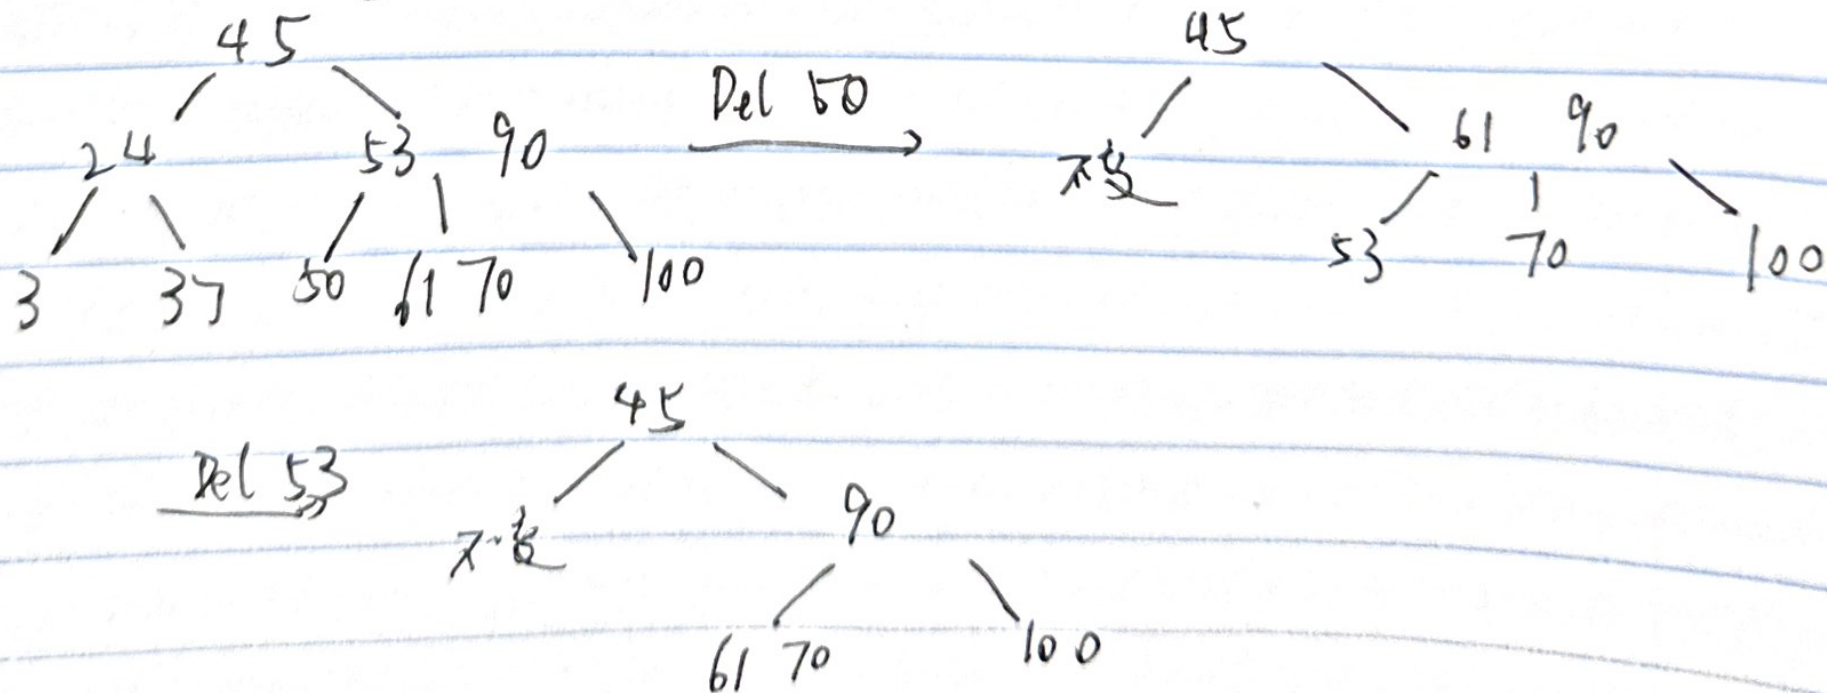 45
24 53 90
3 37 50 61 70 100
Del 50
45
不变 61 90
53 70 100
Del 53
45
不变 90
61 70 100